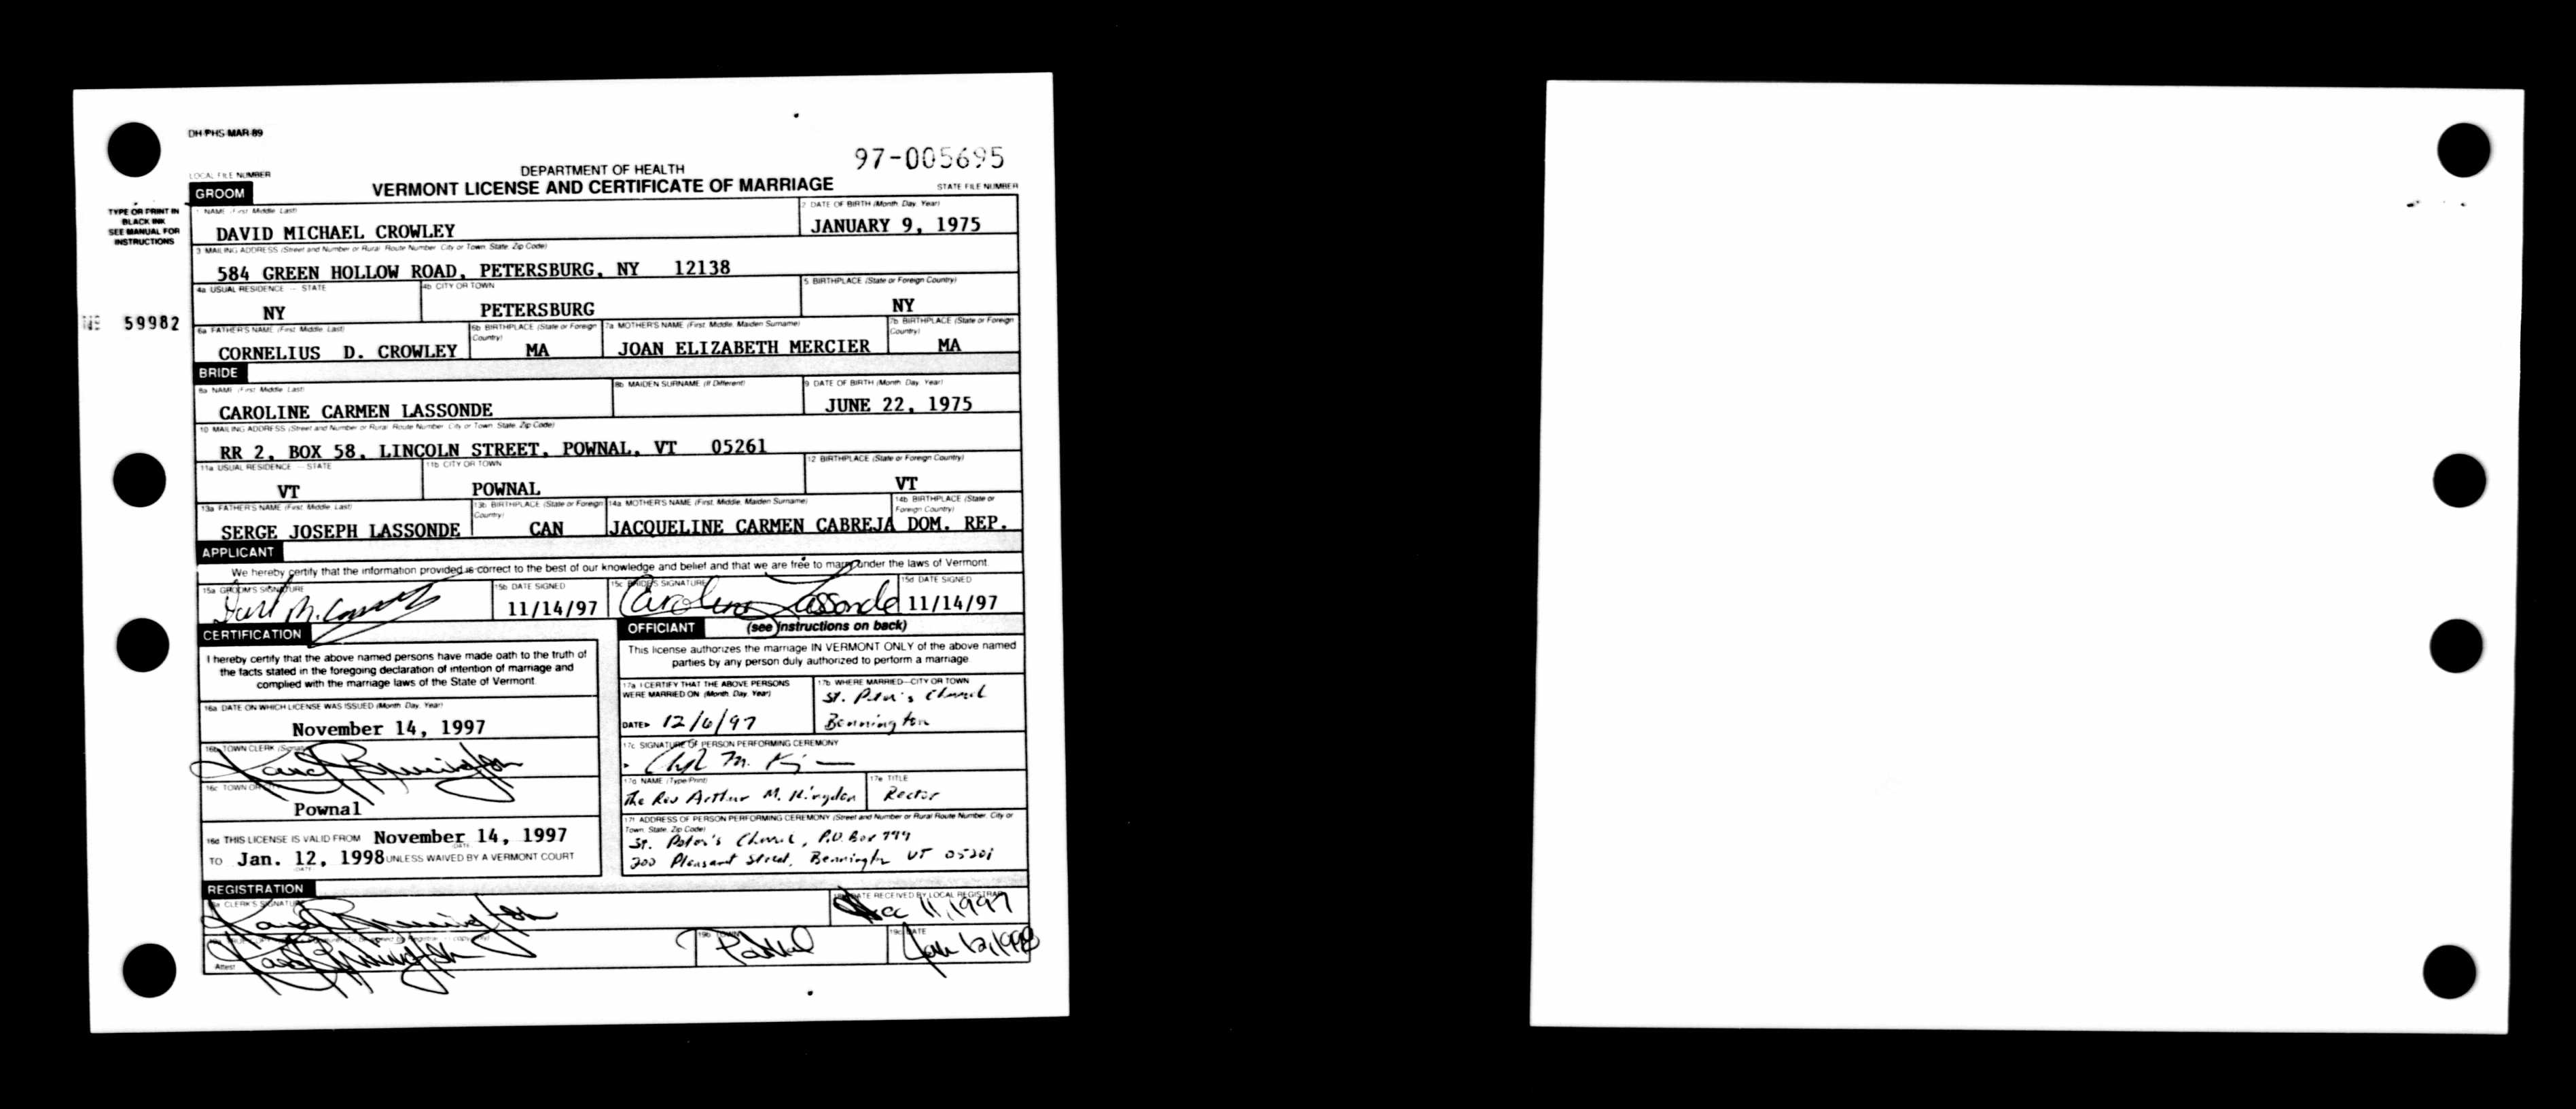 DH-PHS-MAR-89
97-005695
LOCAL FILE NUMBER
DEPARTMENT OF HEALTH
VERMONT LICENSE AND CERTIFICATE OF MARRIAGE
STATE FILE NUMBER
TYPE OR PRINT IN
BLACK INK
SEE MANUAL FOR
INSTRUCTIONS
59982
GROOM
1 NAME (First Middle Last)
2 DATE OF BIRTH (Month Day Year)
DAVID MICHAEL CROWLEY
JANUARY 9, 1975
3 MAILING ADDRESS (Street and Number or Rural Route Number City or Town State Zip Code)
584 GREEN HOLLOW ROAD, PETERSBURG, NY 12138
4a USUAL RESIDENCE - STATE
4b CITY OR TOWN
5 BIRTHPLACE (State or Foreign Country)
NY
PETERSBURG
NY
6a FATHER'S NAME (First Middle Last)
6b BIRTHPLACE (State or Foreign Country)
7a MOTHER'S NAME (First Middle Maiden Surname)
7b BIRTHPLACE (State or Foreign Country)
CORNELIUS D. CROWLEY
MA
JOAN ELIZABETH MERCIER
MA
BRIDE
8a NAME (First Middle Last)
8b MAIDEN SURNAME (If Different)
9 DATE OF BIRTH (Month Day Year)
CAROLINE CARMEN LASSONDE
JUNE 22, 1975
10 MAILING ADDRESS (Street and Number or Rural Route Number City or Town State Zip Code)
RR 2, BOX 58, LINCOLN STREET, POWNAL, VT 05261
11a USUAL RESIDENCE - STATE
11b CITY OR TOWN
12 BIRTHPLACE (State or Foreign Country)
VT
POWNAL
VT
13a FATHER'S NAME (First Middle Last)
13b BIRTHPLACE (State or Foreign Country)
14a MOTHER'S NAME (First Middle Maiden Surname)
14b BIRTHPLACE (State or Foreign Country)
SERGE JOSEPH LASSONDE
CAN
JACQUELINE CARMEN CABREJA
DOM. REP.
APPLICANT
We hereby certify that the information provided is correct to the best of our knowledge and belief and that we are free to marry under the laws of Vermont.
15a GROOM'S SIGNATURE
15b DATE SIGNED
11/14/97
15c BRIDE'S SIGNATURE
Caroline Lassonde
15d DATE SIGNED
11/14/97
CERTIFICATION
I hereby certify that the above named persons have made oath to the truth of
the facts stated in the foregoing declaration of intention of marriage and
complied with the marriage laws of the State of Vermont.
16a DATE ON WHICH LICENSE WAS ISSUED (Month Day Year)
November 14, 1997
16b TOWN CLERK (Signature)
16c TOWN OR
Pownal
16d THIS LICENSE IS VALID FROM November 14, 1997
DATE
TO Jan. 12, 1998 UNLESS WAIVED BY A VERMONT COURT
DATE
OFFICIANT (see instructions on back)
This license authorizes the marriage IN VERMONT ONLY of the above named
parties by any person duly authorized to perform a marriage
17a I CERTIFY THAT THE ABOVE PERSONS
WERE MARRIED ON (Month Day Year)
DATE 12/6/97
17b WHERE MARRIED—CITY OR TOWN
St. Peter's Church
Bennington
17c SIGNATURE OF PERSON PERFORMING CEREMONY
17d NAME (Type/Print)
The Rev Arthur M. Kingdon
17e TITLE
Rector
17f ADDRESS OF PERSON PERFORMING CEREMONY (Street and Number or Rural Route Number, City or
Town, State, Zip Code)
St. Peter's Church, P.O. Box 799
200 Pleasant Street, Bennington VT 05201
REGISTRATION
CLERK'S SIGNATURE
DATE RECEIVED BY LOCAL REGISTRAR
Dec 11, 1997
Attest
19b TOWN
Pownal
19c DATE
Jan 12, 1998